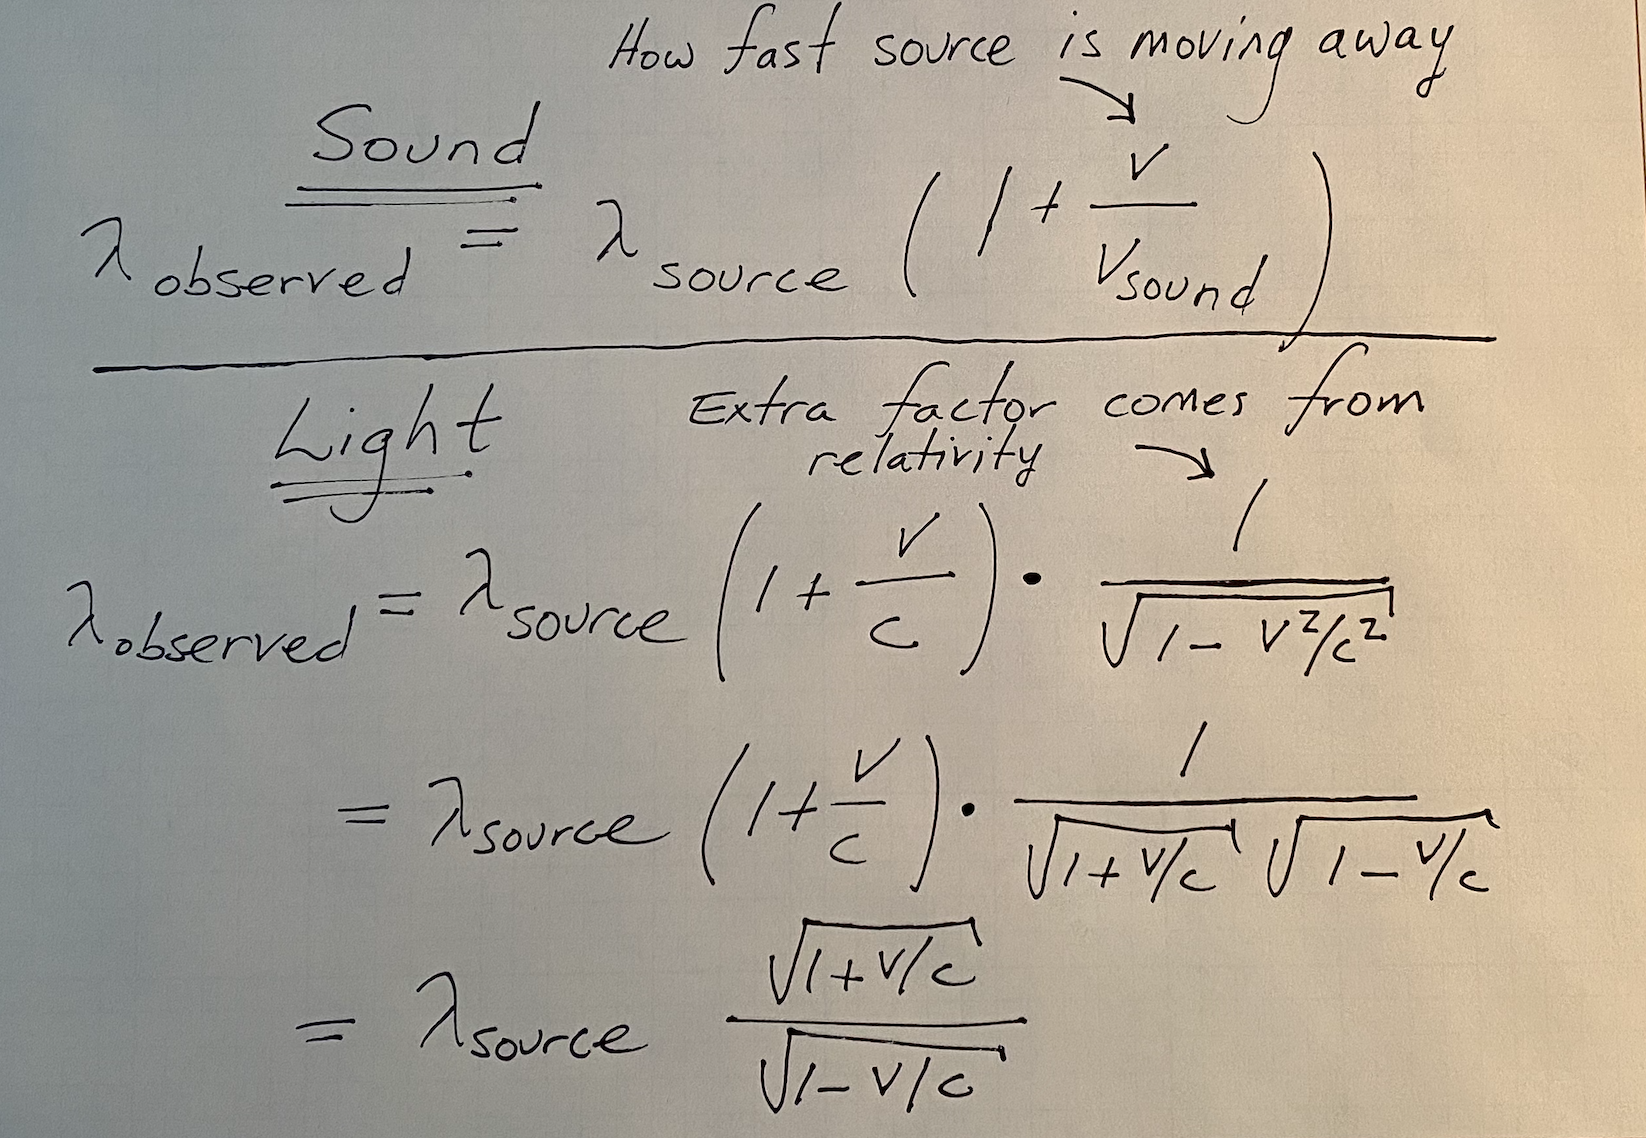 How fast source is moving away
Sound
λ observed = λ source ( 1 + v / v sound )
Light
Extra factor comes from
relativity
λ observed = λ source ( 1 + v / c ) · 1 / √(1 - v²/c²)
= λ source ( 1 + v / c ) · 1 / √(1 + v/c) √(1 - v/c)
= λ source √(1 + v/c) / √(1 - v/c)